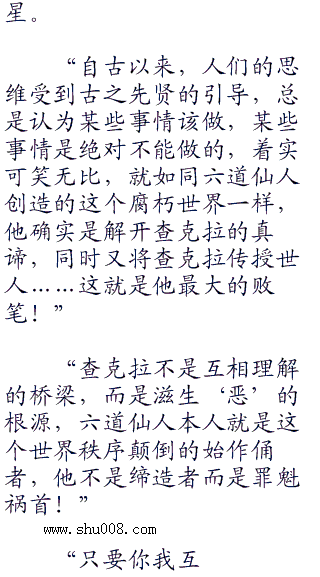 星。
“自古以来，人们的思
维受到古之先贤的引导，总
是认为某些事情该做，某些
事情是绝对不能做的，着实
可笑无比，就如同六道仙人
创造的这个腐朽世界一样，
他确实是解开查克拉的真
谛，同时又将查克拉传授世
人……这就是他最大的败
笔！”
“查克拉不是互相理解
的桥梁，而是滋生‘恶’的
根源，六道仙人本人就是这
个世界秩序颠倒的始作俑
者，他不是缔造者而是罪魁
祸首！”
www.shu008.com
“只要你我互